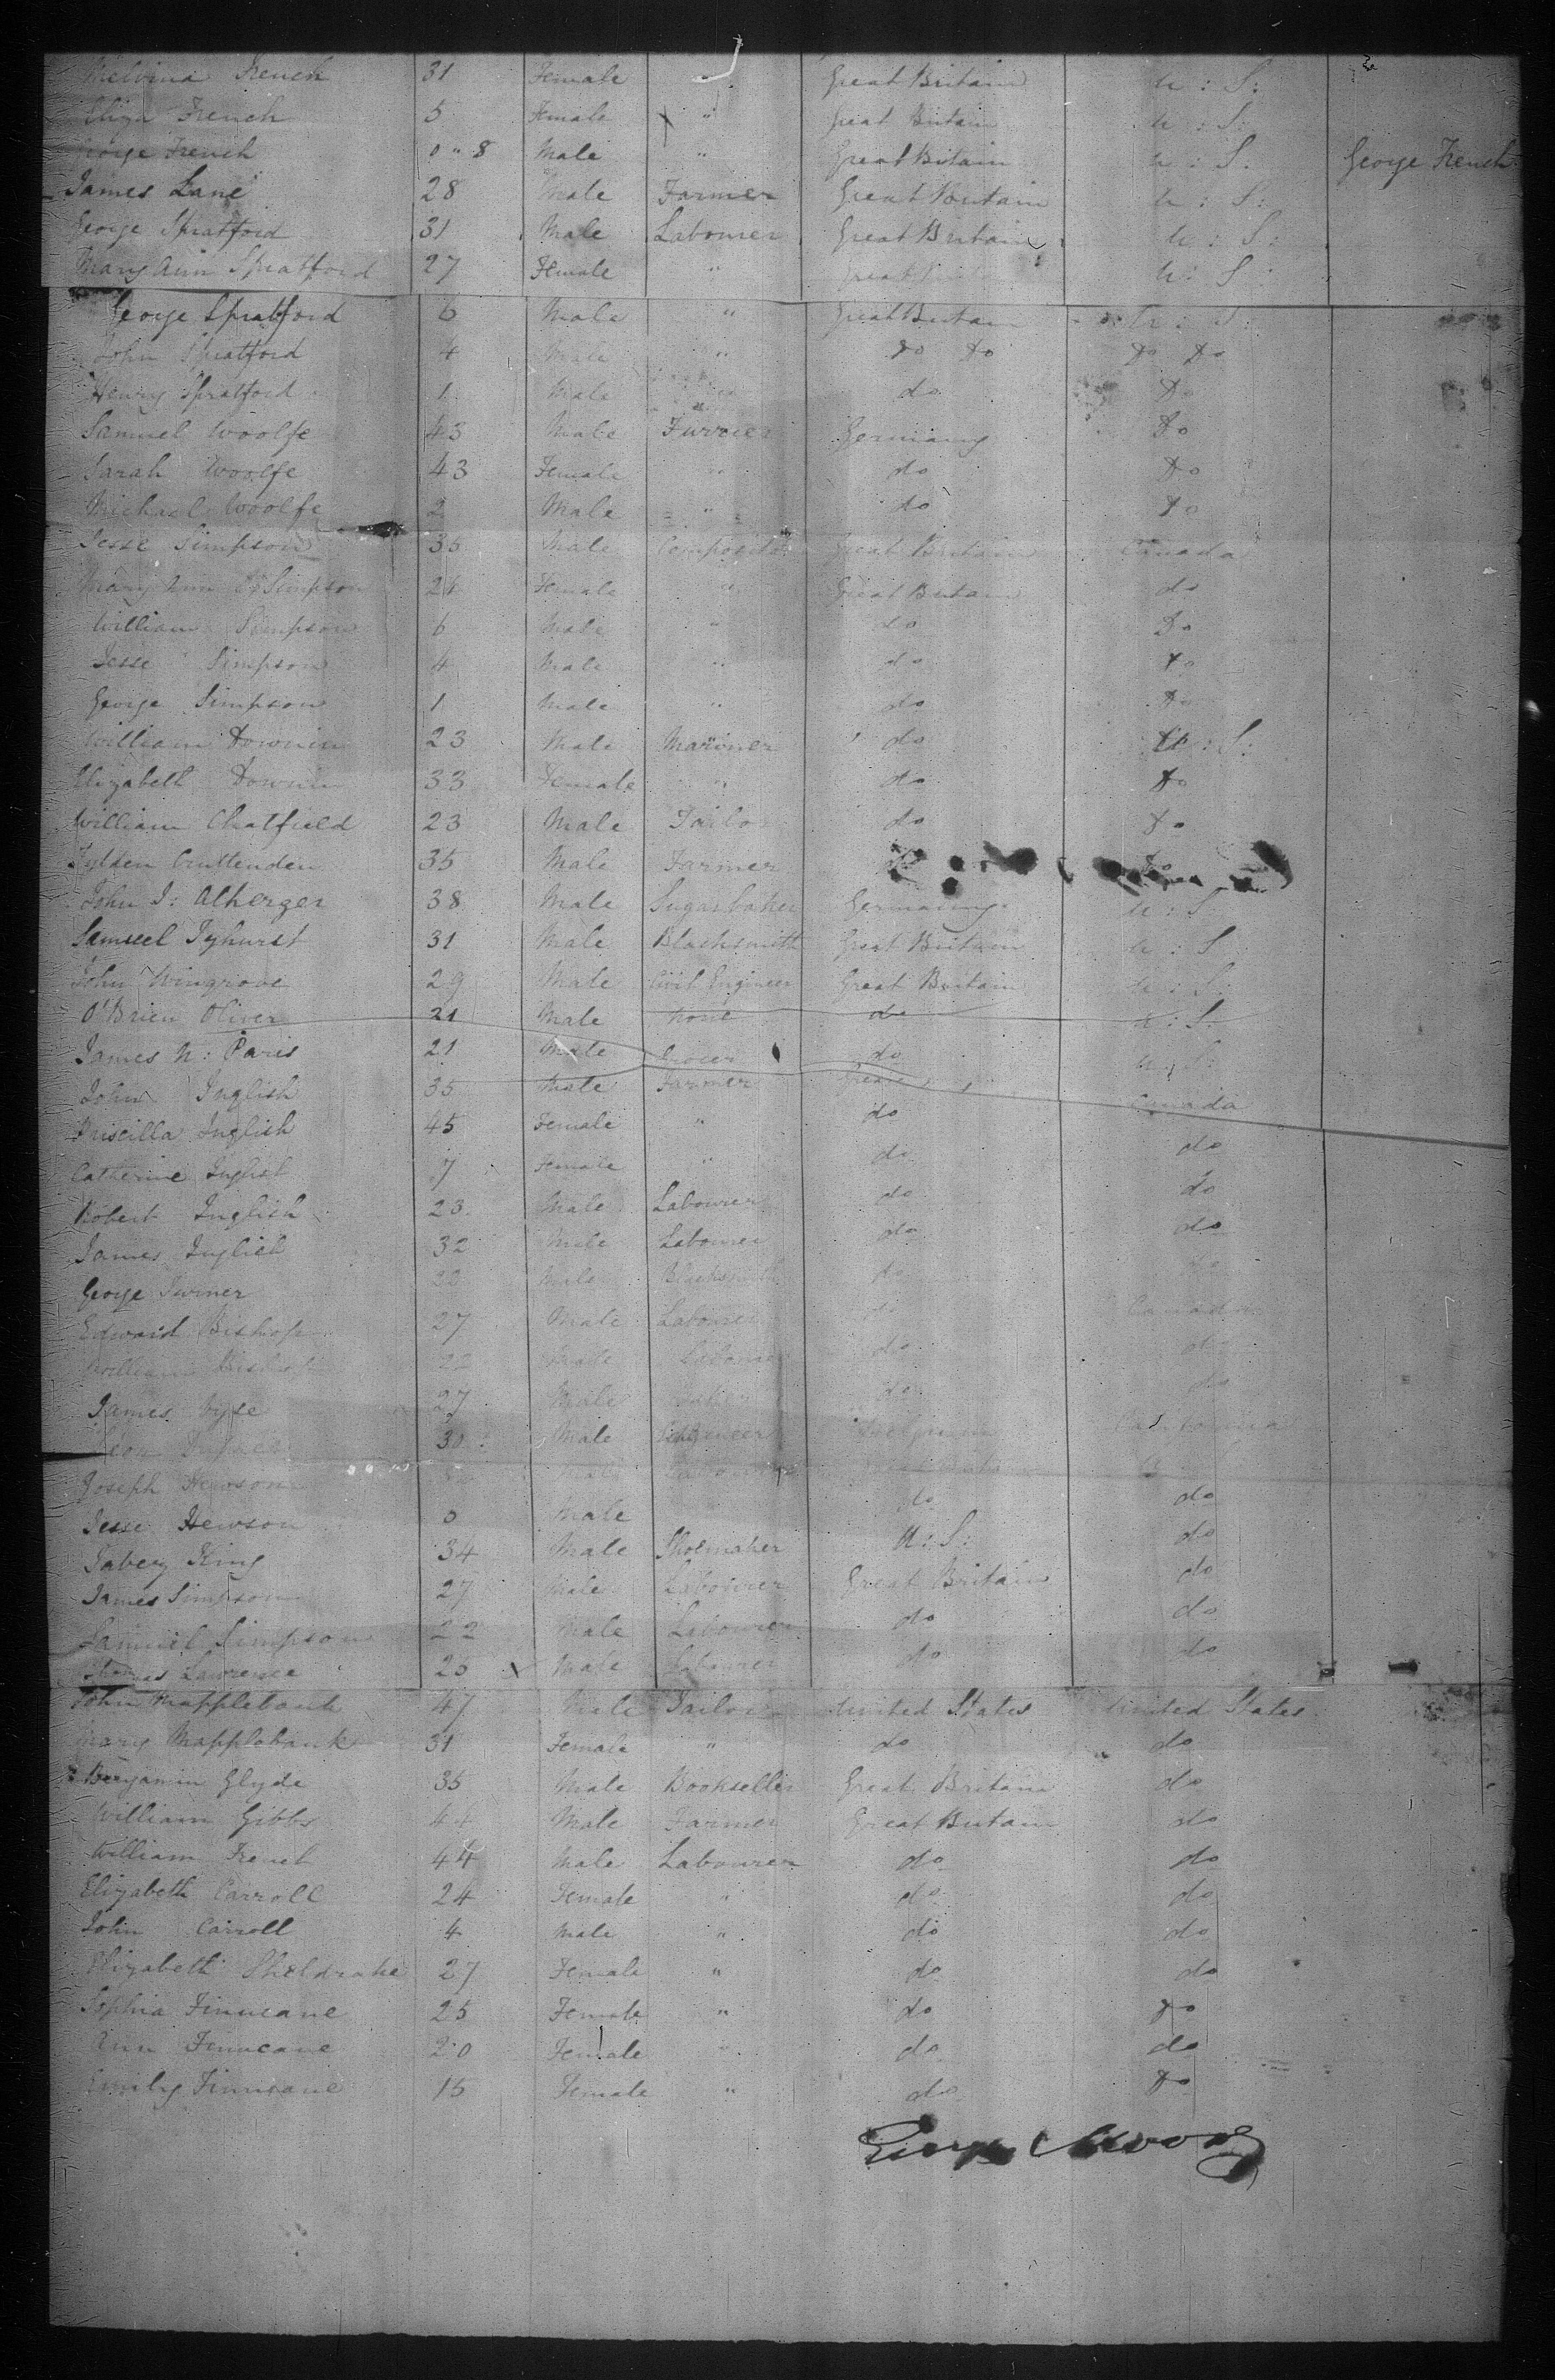 Melvina French 31 Female " Great Britain U : S :
Eliza French 5 Female " Great Britain U : S :
George French 0 " 8 Male " Great Britain U : S : George French
James Lane 28 Male Farmer Great Britain U : S :
George Spratford 31 Male Labourer Great Britain U : S :
Mary Ann Spratford 27 Female " Great U : S :
George Spratford 6 Male " Great Britain U : S :
John Spratford 4 Male " Do Do Do Do
Henry Spratford 1 Male " do Do
Samuel Woolfe 43 Male Furrier Germany Do
Sarah Woolfe 43 Female " do Do
Michael Woolfe 2 Male " do Do
Jesse Simpson 35 Male Compositor Great Britain Canada
Mary Ann Simpson Female " Great Britain do
William Simpson 6 Male " do Do
Jesse Simpson 4 Male " do Do
George Simpson 1 Male " do Do
William Downin 23 Male Mariner do U : S :
Elizabeth Downin 33 Female " do Do
William Chatfield 23 Male Tailor do Do
Tylden Cruttenden 35 Male Farmer Do
John J : Alherger 38 Male Sugar baker Germany U : S
Samuel Tyhurst 31 Male Blacksmith Great Britain U : S
John Wingrove 29 Male Civil Engineer Great Britain U : S
O'Brien Oliver 21 Male None do U : S
James N : Paris 21 Male Grocer do U : S :
John Inglish 35 Male Farmer Great Canada
Priscilla Inglish 45 Female " do do
Catherine Inglish 7 Female " do do
Robert Inglish 23 Male Labourer do do
James Inglish 32 Male Labourer do do
George Turner 22 Male Blacksmith do Canada
Edward Bishop 27 Male Labourer do do
William 22 Male Labourer do do
James Vyse 27 Male do
30 Male Belgium California
Joseph Hewson Male Labourer Great
Jesse Hewson 0 Male do do
Tabez King 34 Male Shoemaker U : S : do
James Simpson 27 Male Labourer Great Britain do
Samuel Simpson 22 Male Labourer do do
Thomas Lawrence 25 Male Labourer do do
John Mapplebank 47 Male Tailor United States United States
Mary Mapplebank 31 Female " do do
Benjamin Glyde 35 Male Bookseller Great Britain do
William Gibbs 44 Male Farmer Great Britain do
William French 44 Male Labourer do do
Elizabeth Carroll 24 Female " do do
John Carroll 4 Male " do do
Elizabeth Sheldrake 27 Female " do do
Sophia Finucane 25 Female " do Do
Ann Finucane 20 Female " do do
Emily Finucane 15 Female " do Do
George Moore